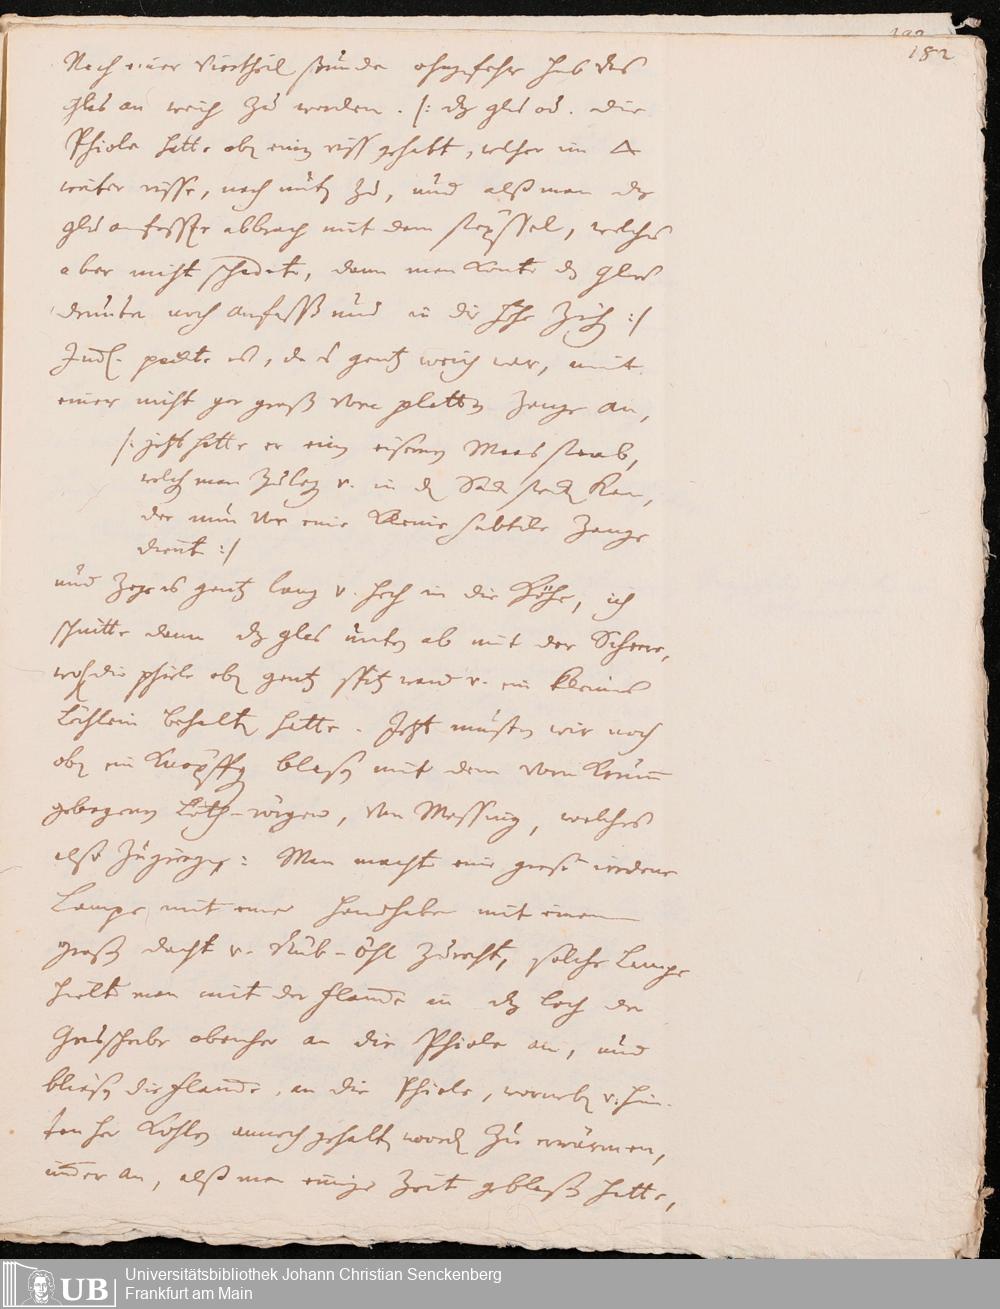 182
Nach einer Viertheil stunde ohngefehr hub das
glas an weich zu werden. /: dz glas od. die
Phiole hatte oben einen riss gehabt, welcher im △
weiter risse, nach unten zu, und alß man dz
glas anfasste abbrach mit dem stöpssel, welches
aber nicht schadete, dann man konte dz glas
drunten noch anfassen und in die Höhe ziehen :/
packte es, da es gantz weich war, mit
einer nicht gar groß vorn platten Zange an,
/: jetzt hatte er einen eisernen Maas staab,
welchen man zulegen v. in den Sack stecken kan,
der nun vor eine kleine subtile Zange
dient :/
und zoge es gantz lang v. hoch in die Höhe, ich
schnitte dann dz glas unten ab mit der Scheere,
die phiole oben gantz spitz ward v. ein kleines
Löchlein behalten hatte. Jetzt musten wir noch
oben ein Knöpffgen blasen mit dem vorn krumm
gebogenen Löth-rörgen, von Messing, welches
also zugienge: Man machte eine große irdene
Lampe mit einer Handhabe mit einem
großen dacht v. Rüb-öhl zurecht, solche Lampe
hielte man mit der flamme in dz loch der
obenher an die Phiole an, und
bließ die flamme, an die Phiole, worneben v. hin-
ten her Kohlen annoch gehalten worden zu erwärmen,
immer an, alß man einige Zeit geblasen hatte,
UB
Universitätsbibliothek Johann Christian Senckenberg
Frankfurt am Main